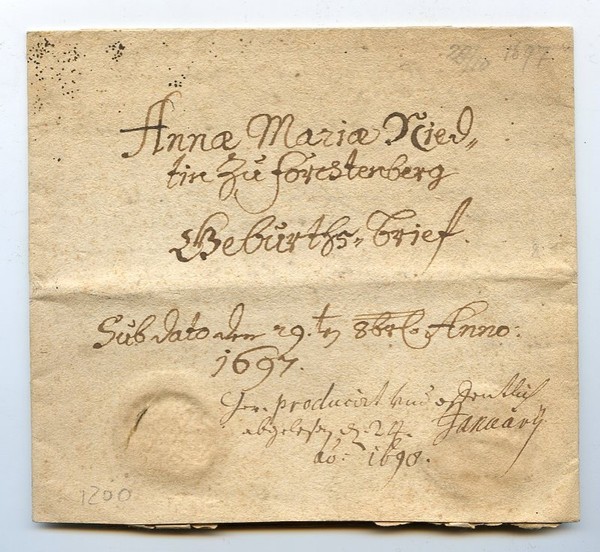 1697
Annæ Mariæ Ried„
tin zu Forchtenberg
Geburths„brief.
Sub dato den 29.ten 8br. Anno:
1697.
producirt und offentlich
abgelesen d. 24. January
ao: 1698.
1200